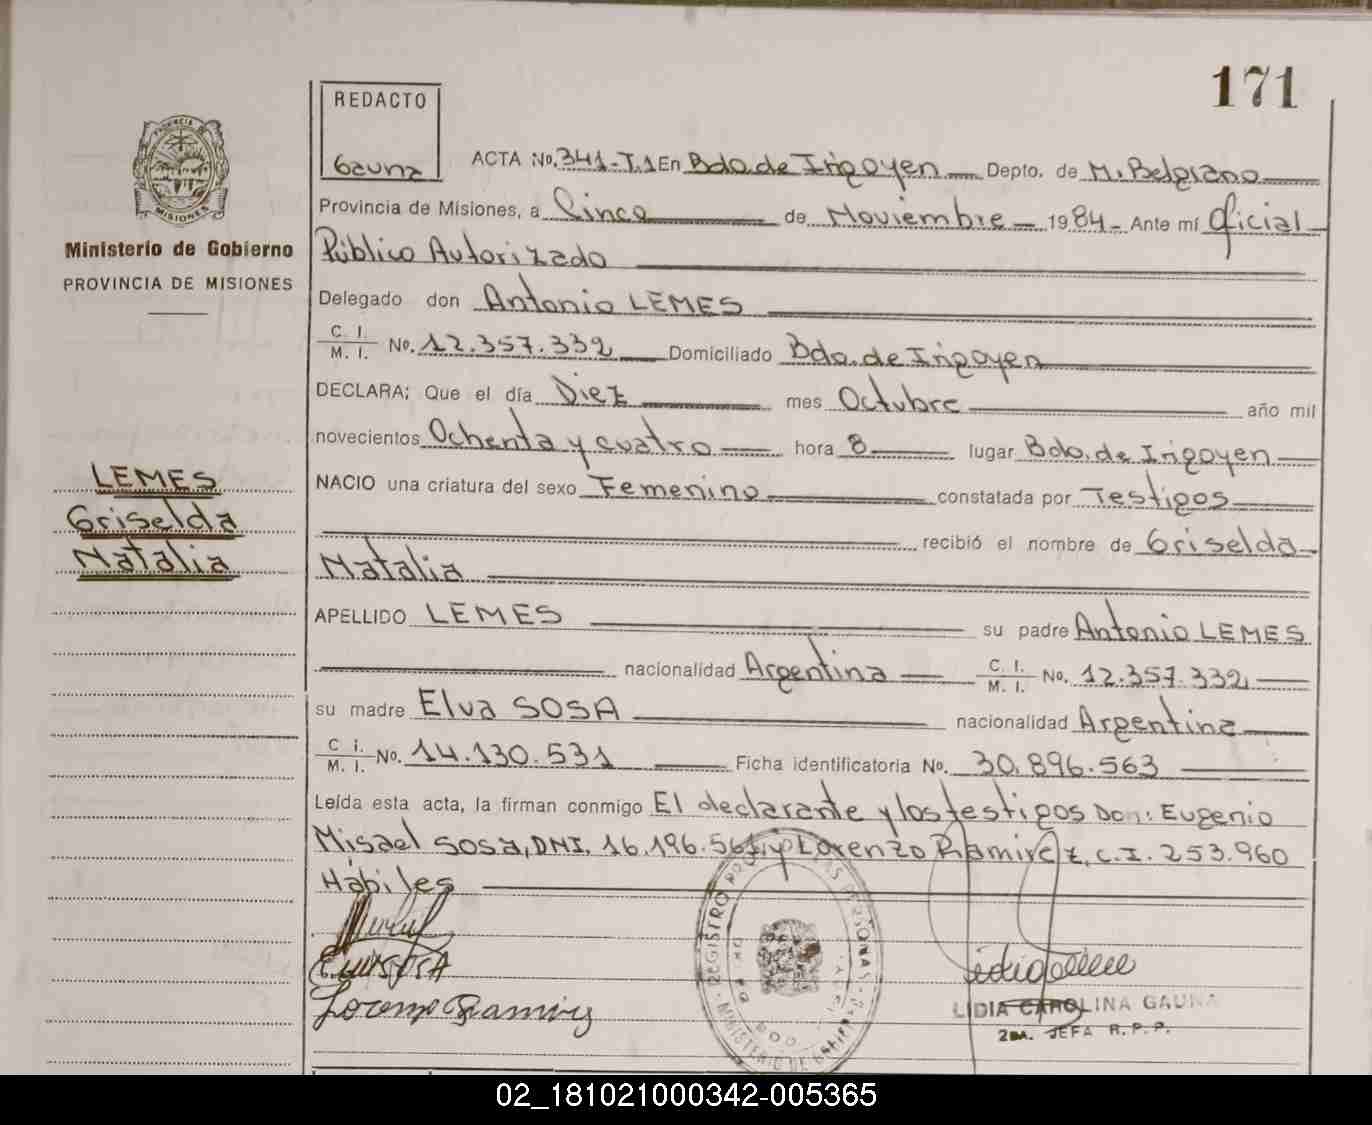 171
REDACTO
Gauna
PROVINCIA DE
MISIONES
Ministerio de Gobierno
PROVINCIA DE MISIONES
LEMES
Griselda
Natalia
ACTA No. 341-T.1 En Bdo. de Irigoyen Depto. de M. Belgrano
Provincia de Misiones, a Cinco de Noviembre 1984 Ante mí Oficial
Público Autorizado
Delegado don Antonio LEMES
C. I. M. I. No. 12.357.332 Domiciliado Bdo. de Irigoyen
DECLARA; Que el día Diez mes Octubre año mil
novecientos Ochenta y cuatro hora 8 lugar Bdo. de Irigoyen
NACIO una criatura del sexo Femenino constatada por Testigos
recibió el nombre de Griselda
Natalia
APELLIDO LEMES su padre Antonio LEMES
nacionalidad Argentina C. I. M. I. No. 12.357.332
su madre Elva SOSA nacionalidad Argentina
C. I. M. I. No. 14.130.531 Ficha identificatoria No. 30.896.563
Leída esta acta, la firman conmigo El declarante y los testigos Don: Eugenio
Misael SOSA, DNI. 16.196.561, y Lorenzo Ramirez, C.I. 253.960
Hábiles
SOSA
Lorenzo Ramirez
REGISTRO PERSONAS
MINISTERIO DE
LIDIA CAROLINA GAUNA
2DA. JEFA R. P. P.
02_181021000342-005365